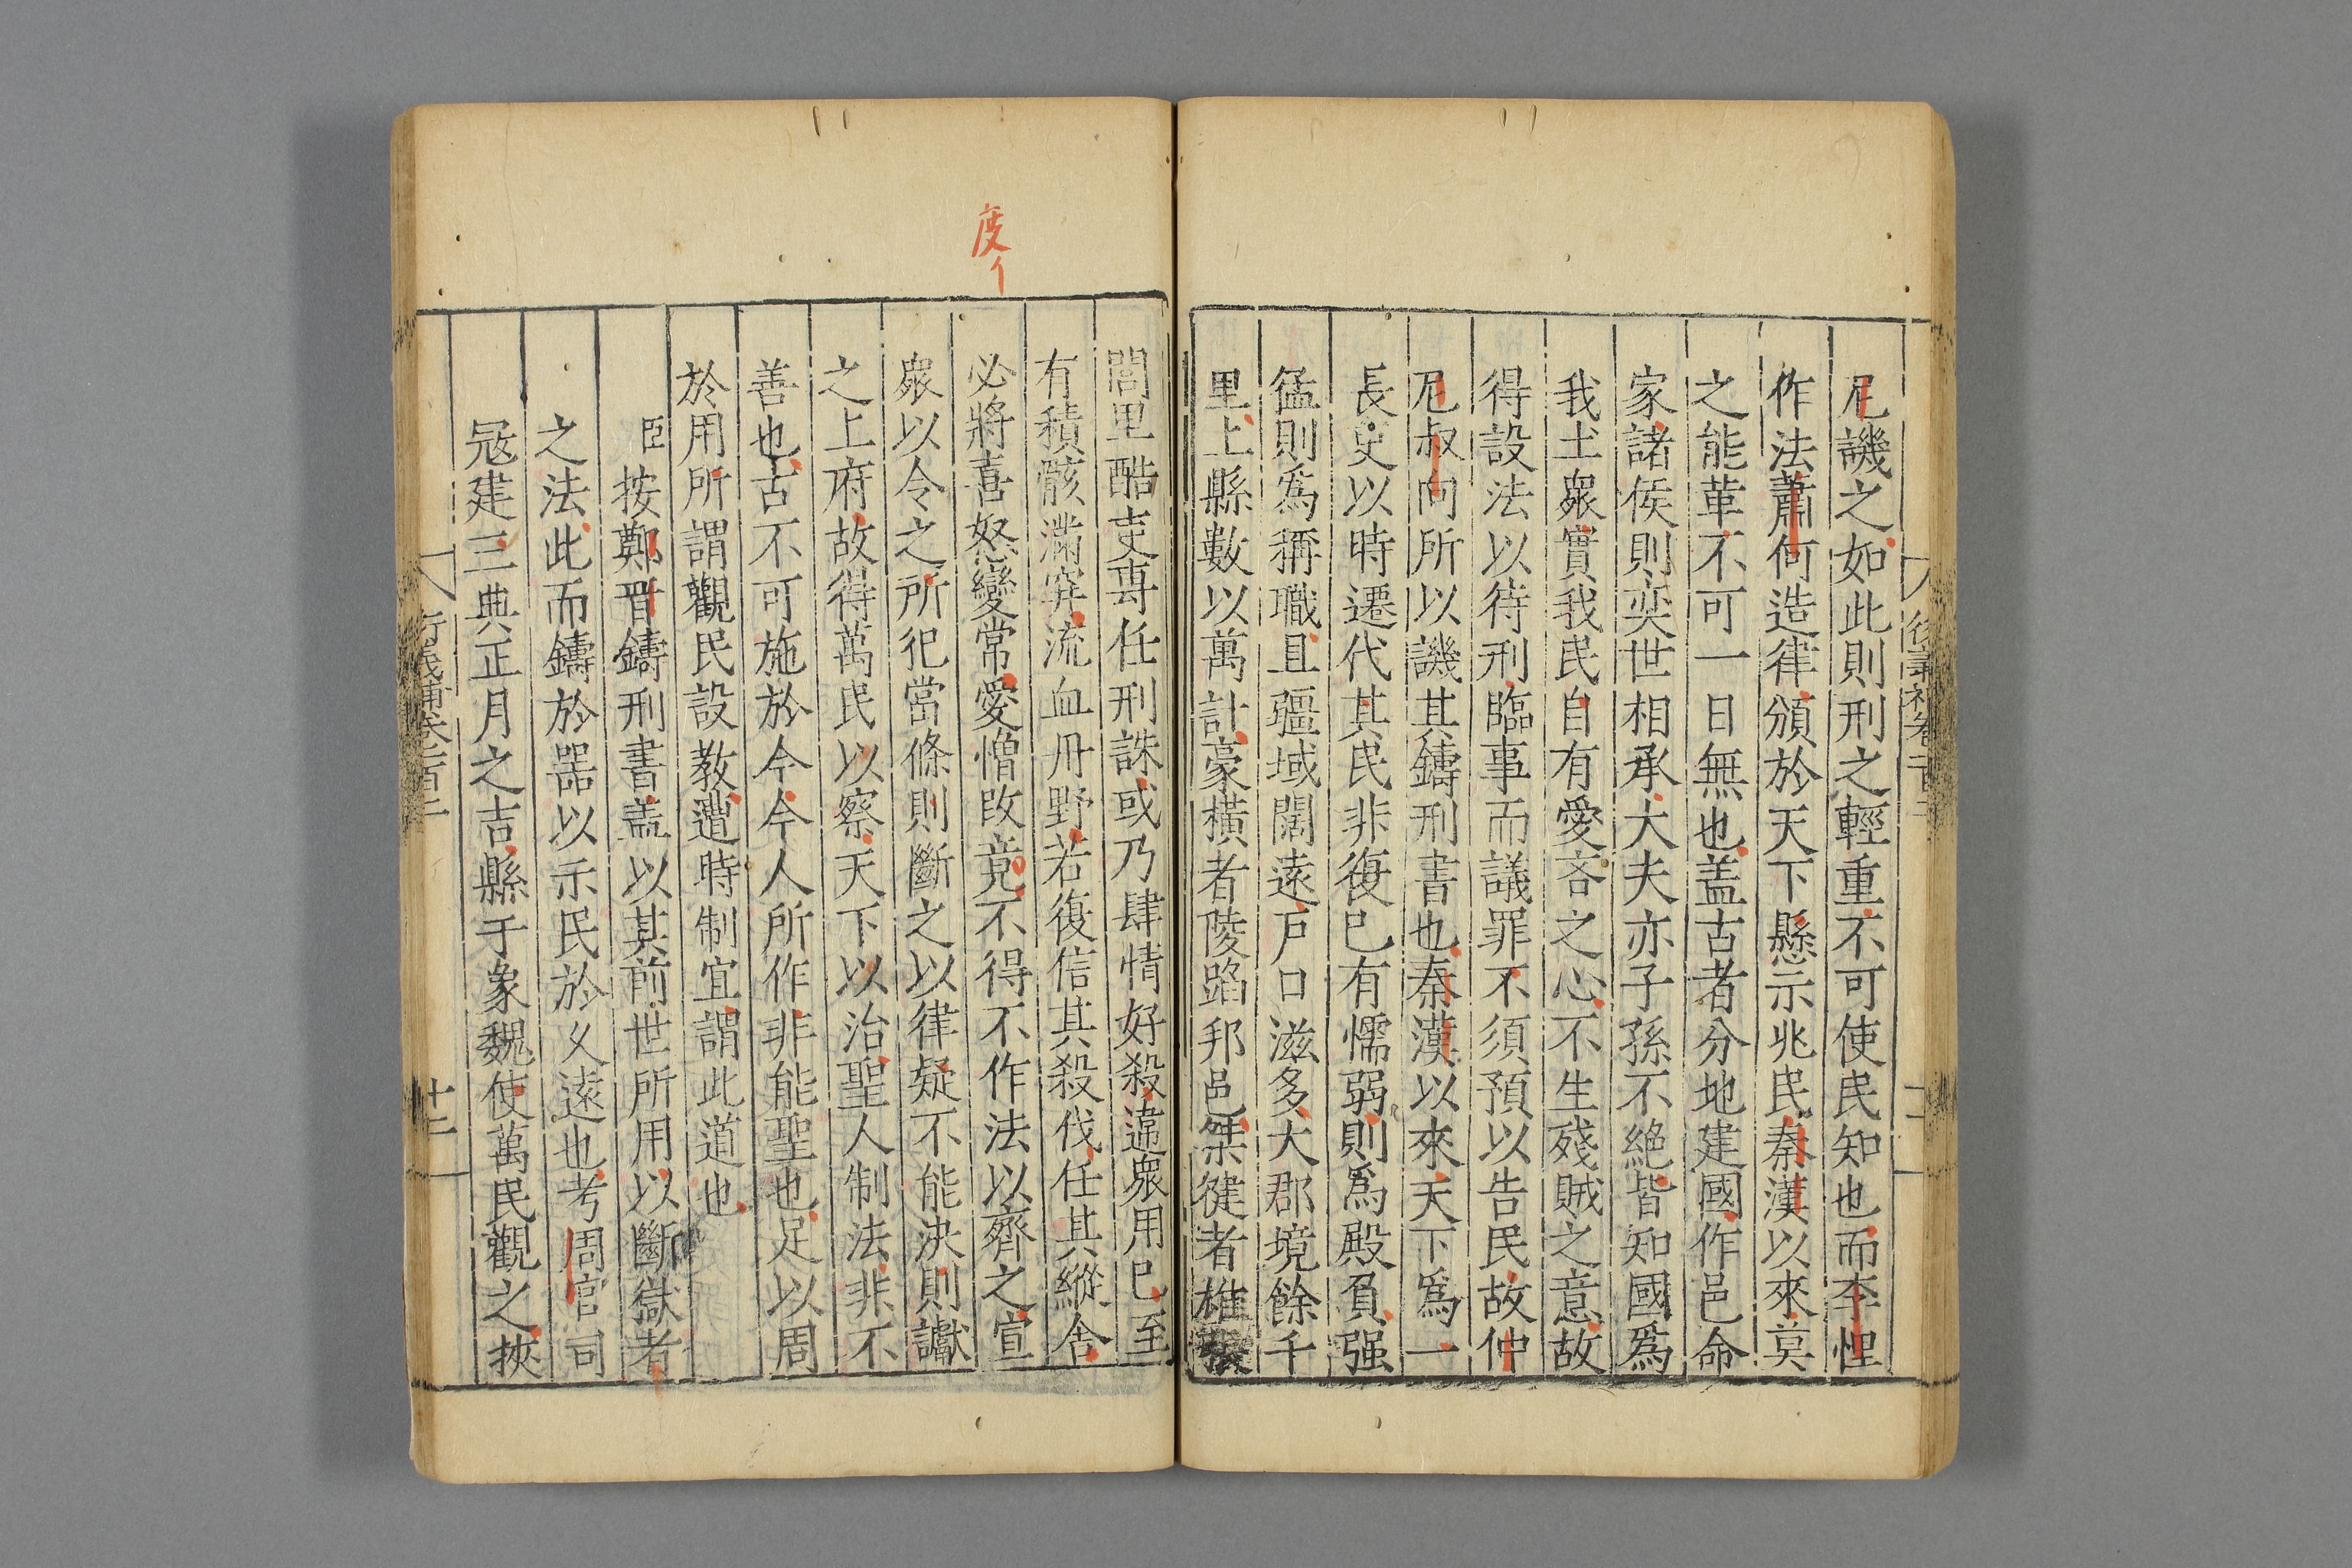 尼譏之如此則刑之輕重不可使民知也而李悝
作法蕭何造律頒於天下懸示兆民秦漢以來莫
之能革不可一日無也盖古者分地建國作邑命
家諸侯則奕世相承大夫亦子孫不絶皆知國爲
我土衆實我民自有愛吝之心不生殘賊之意故
得設法以待刑臨事而議罪不須預以告民故仲
尼叔向所以譏其鑄刑書也秦漢以來天下爲一
長吏以時遷代其民非復已有懦弱則爲殿負强
猛則爲稱職且疆域闊遠戶口滋多大郡境餘千
里上縣數以萬計豪橫者陵蹈邦邑桀健者雄張
閭里酷吏專任刑誅或乃肆情好殺違衆用已至
有積骸滿穽流血丹野若復信其殺伐任其縱舍
必將喜怒變常愛憎改竟不得不作法以齊之宣
衆以令之所犯當條則斷之以律疑不能決則讞
之上府故得萬民以察天下以治聖人制法非不
善也古不可施於今今人所作非能聖也足以周
於用所謂觀民設敎遭時制宜謂此道也
臣按鄭晋鑄刑書盖以其前世所用以斷獄者
之法此而鑄於噐以示民於乂遠也考周官司
冦建三典正月之吉縣于象魏使萬民觀之挾
度
衍義補卷一百二
十三